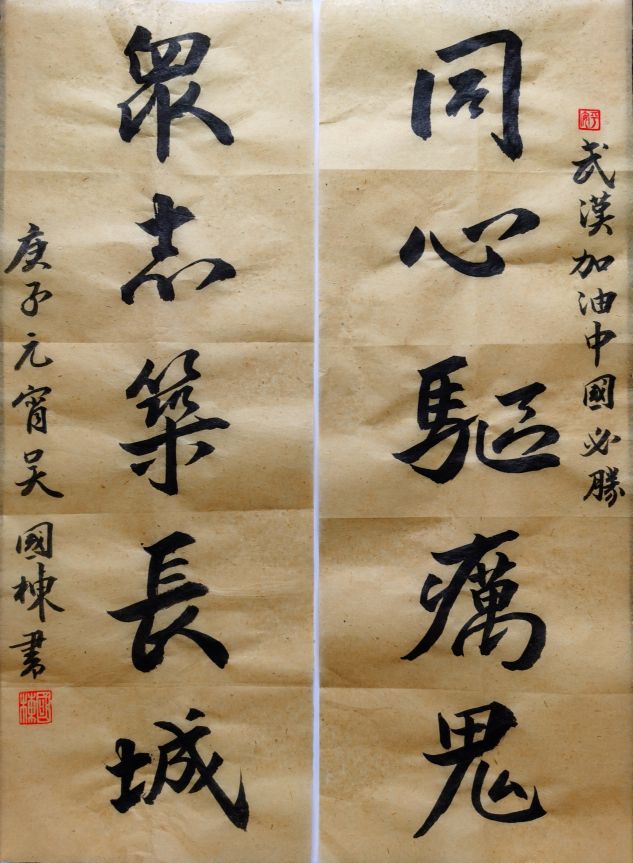 武漢加油中國必勝
同心驅癘鬼
眾志築長城
庚子元宵吳國棟書
國棟